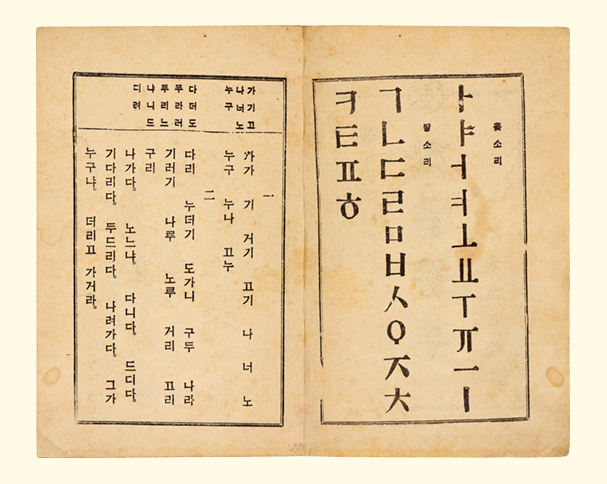 홀소리
ㅏ ㅑ ㅓ ㅕ ㅗ ㅛ ㅜ ㅠ ㅡ ㅣ
닿소리
ㄱ ㄴ ㄷ ㄹ ㅁ ㅂ ㅅ ㅇ ㅈ ㅊ
ㅋ ㅌ ㅍ ㅎ
가 기 고
나 너 노
누 구
다 더 도
루 라 러
두 리 느
냐 니 드
디 려
一
가가 기 거기 고기 나 너 노
누구 누나 고누
二
다리 누더기 도가니 구두 나라
기러기 나루 노루 거리 고리
구리
나가다。 노느냐。 다니다。 드디다。
기다리다。 두드리다。 나려가다。 그가
누구냐。 더리고 가거라。